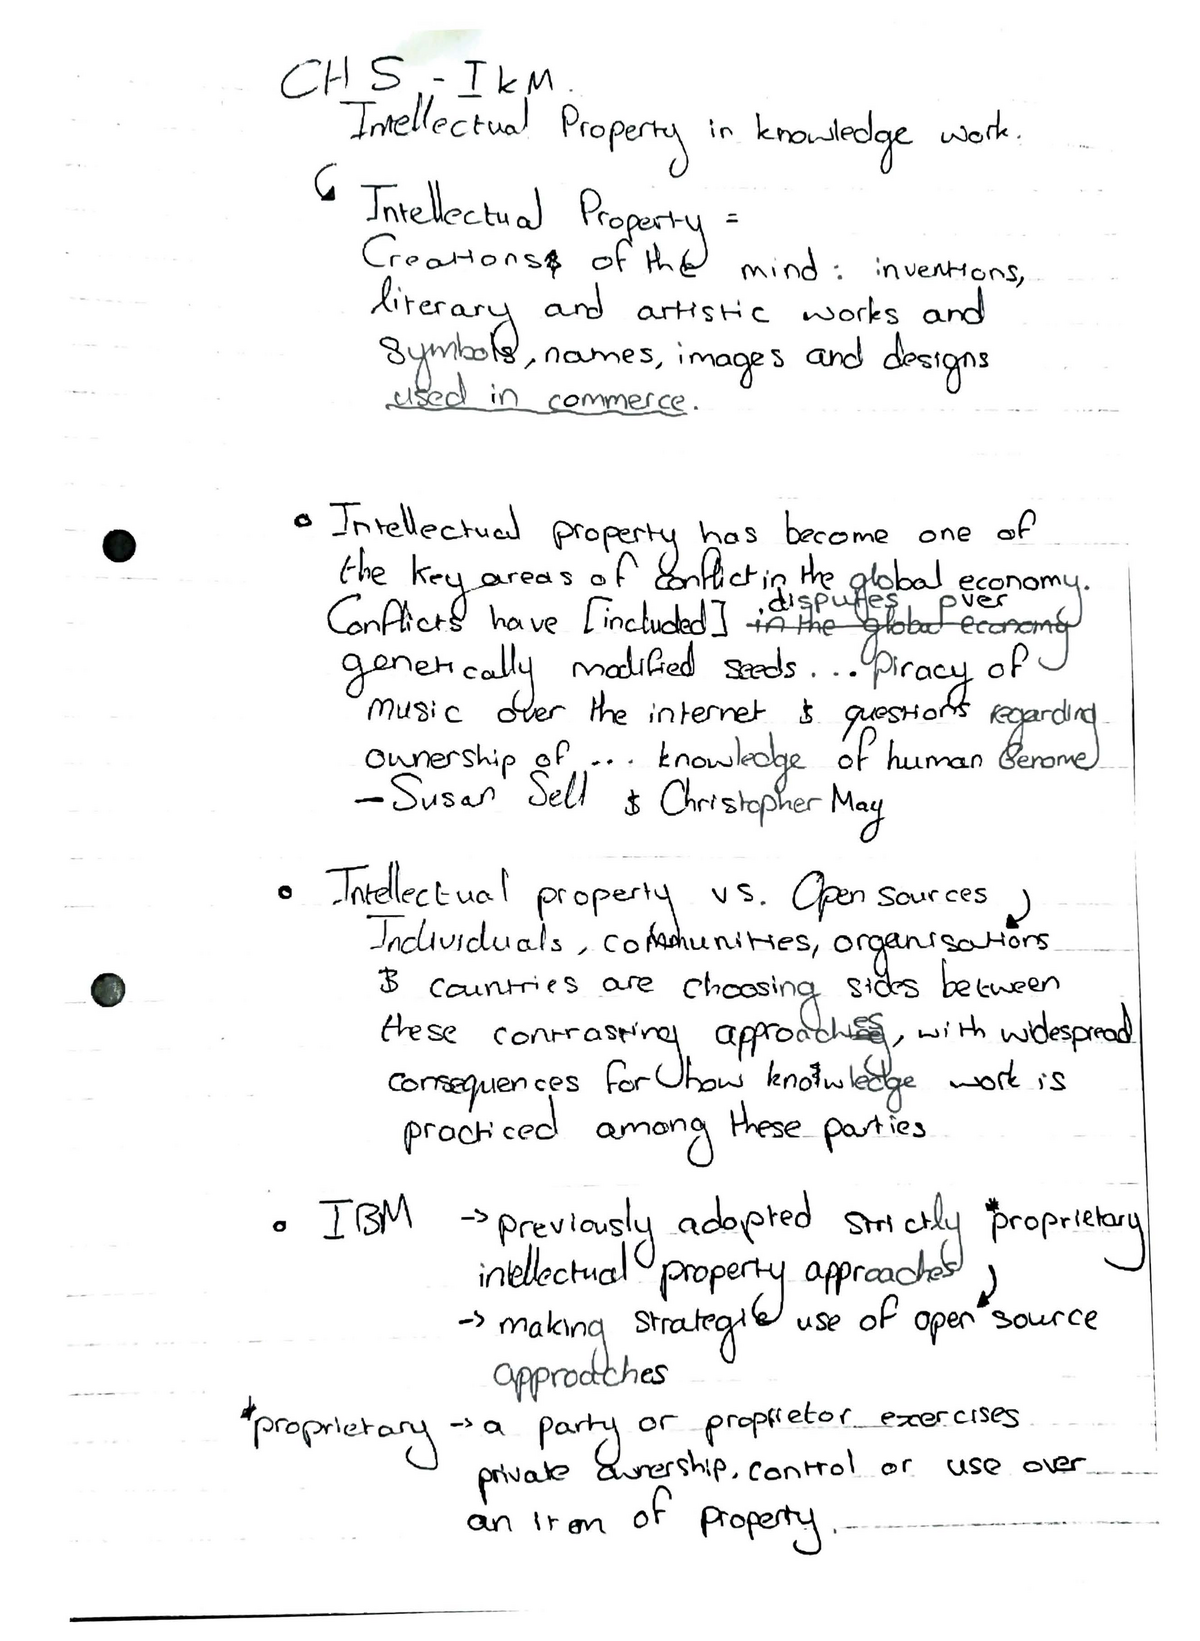 CH 5 - IKM.
Intellectual Property in knowledge work.
Intellectual Property =
Creations of the mind: inventions,
literary and artistic works and
symbols, names, images and designs
used in commerce.
• Intellectual property has become one of
the key areas of conflict in the global economy.
disputes over
Conflicts have [included] in the global economy
genetically modified seeds... Piracy of
music over the internet & questions regarding
ownership of ... knowledge of human Genome
- Susan Sell & Christopher May
• Intellectual property vs. Open sources
Individuals, communities, organisations
& countries are choosing sides between
these contrasting approaches, with widespread
consequences for how knowledge work is
practiced among these parties
• IBM -> previously adopted strictly *proprietary
intellectual property approaches
-> making strategic use of open source
approaches
*proprietary -> a party or proprietor exercises
private ownership, control or use over
an item of property.